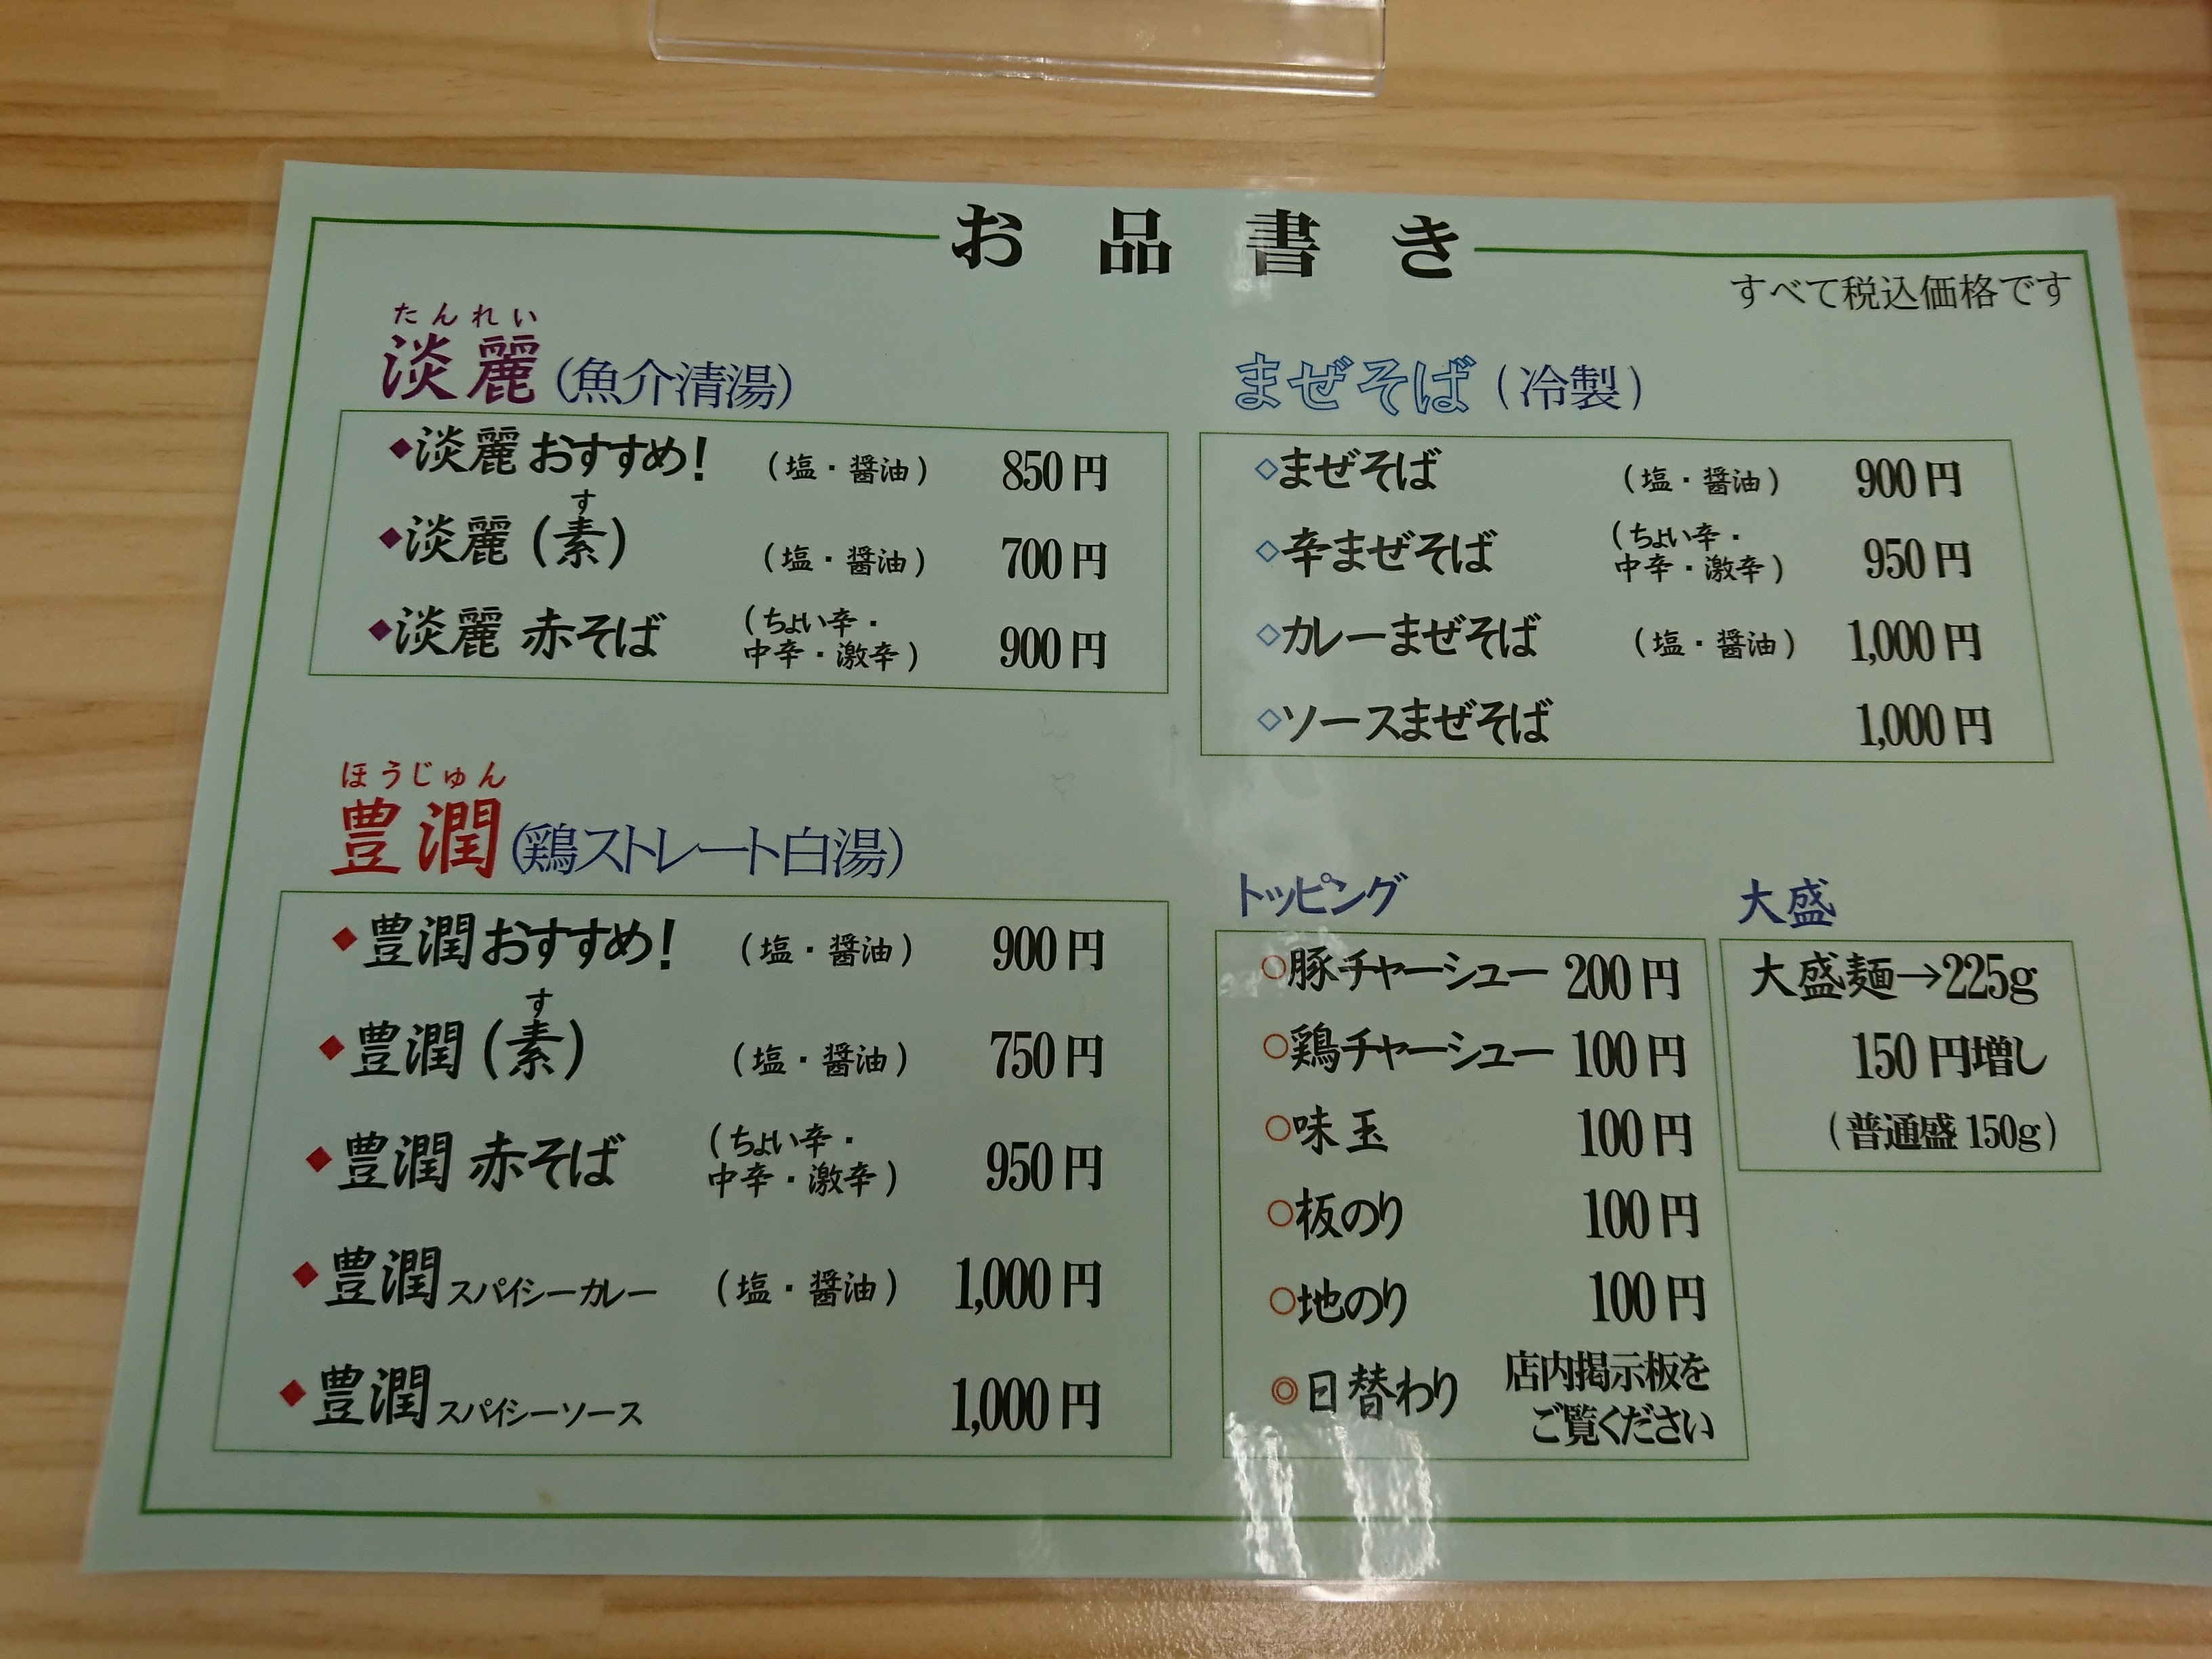 お品書き
すべて税込価格です
たんれい
淡麗(魚介清湯)
◆淡麗おすすめ! (塩・醤油) 850円
す
◆淡麗(素) (塩・醤油) 700円
◆淡麗 赤そば (ちょい辛・
中辛・激辛) 900円
ほうじゅん
豊潤(鶏ストレート白湯)
◆豊潤おすすめ! (塩・醤油) 900円
す
◆豊潤(素) (塩・醤油) 750円
◆豊潤 赤そば (ちょい辛・
中辛・激辛) 950円
◆豊潤スパイシーカレー (塩・醤油) 1,000円
◆豊潤スパイシーソース 1,000円
まぜそば(冷製)
◇まぜそば (塩・醤油) 900円
◇辛まぜそば (ちょい辛・
中辛・激辛) 950円
◇カレーまぜそば (塩・醤油) 1,000円
◇ソースまぜそば 1,000円
トッピング
○豚チャーシュー 200円
○鶏チャーシュー 100円
○味玉 100円
○板のり 100円
○地のり 100円
◎日替わり 店内掲示板を
ご覧ください
大盛
大盛麺→225g
150円増し
(普通盛150g)